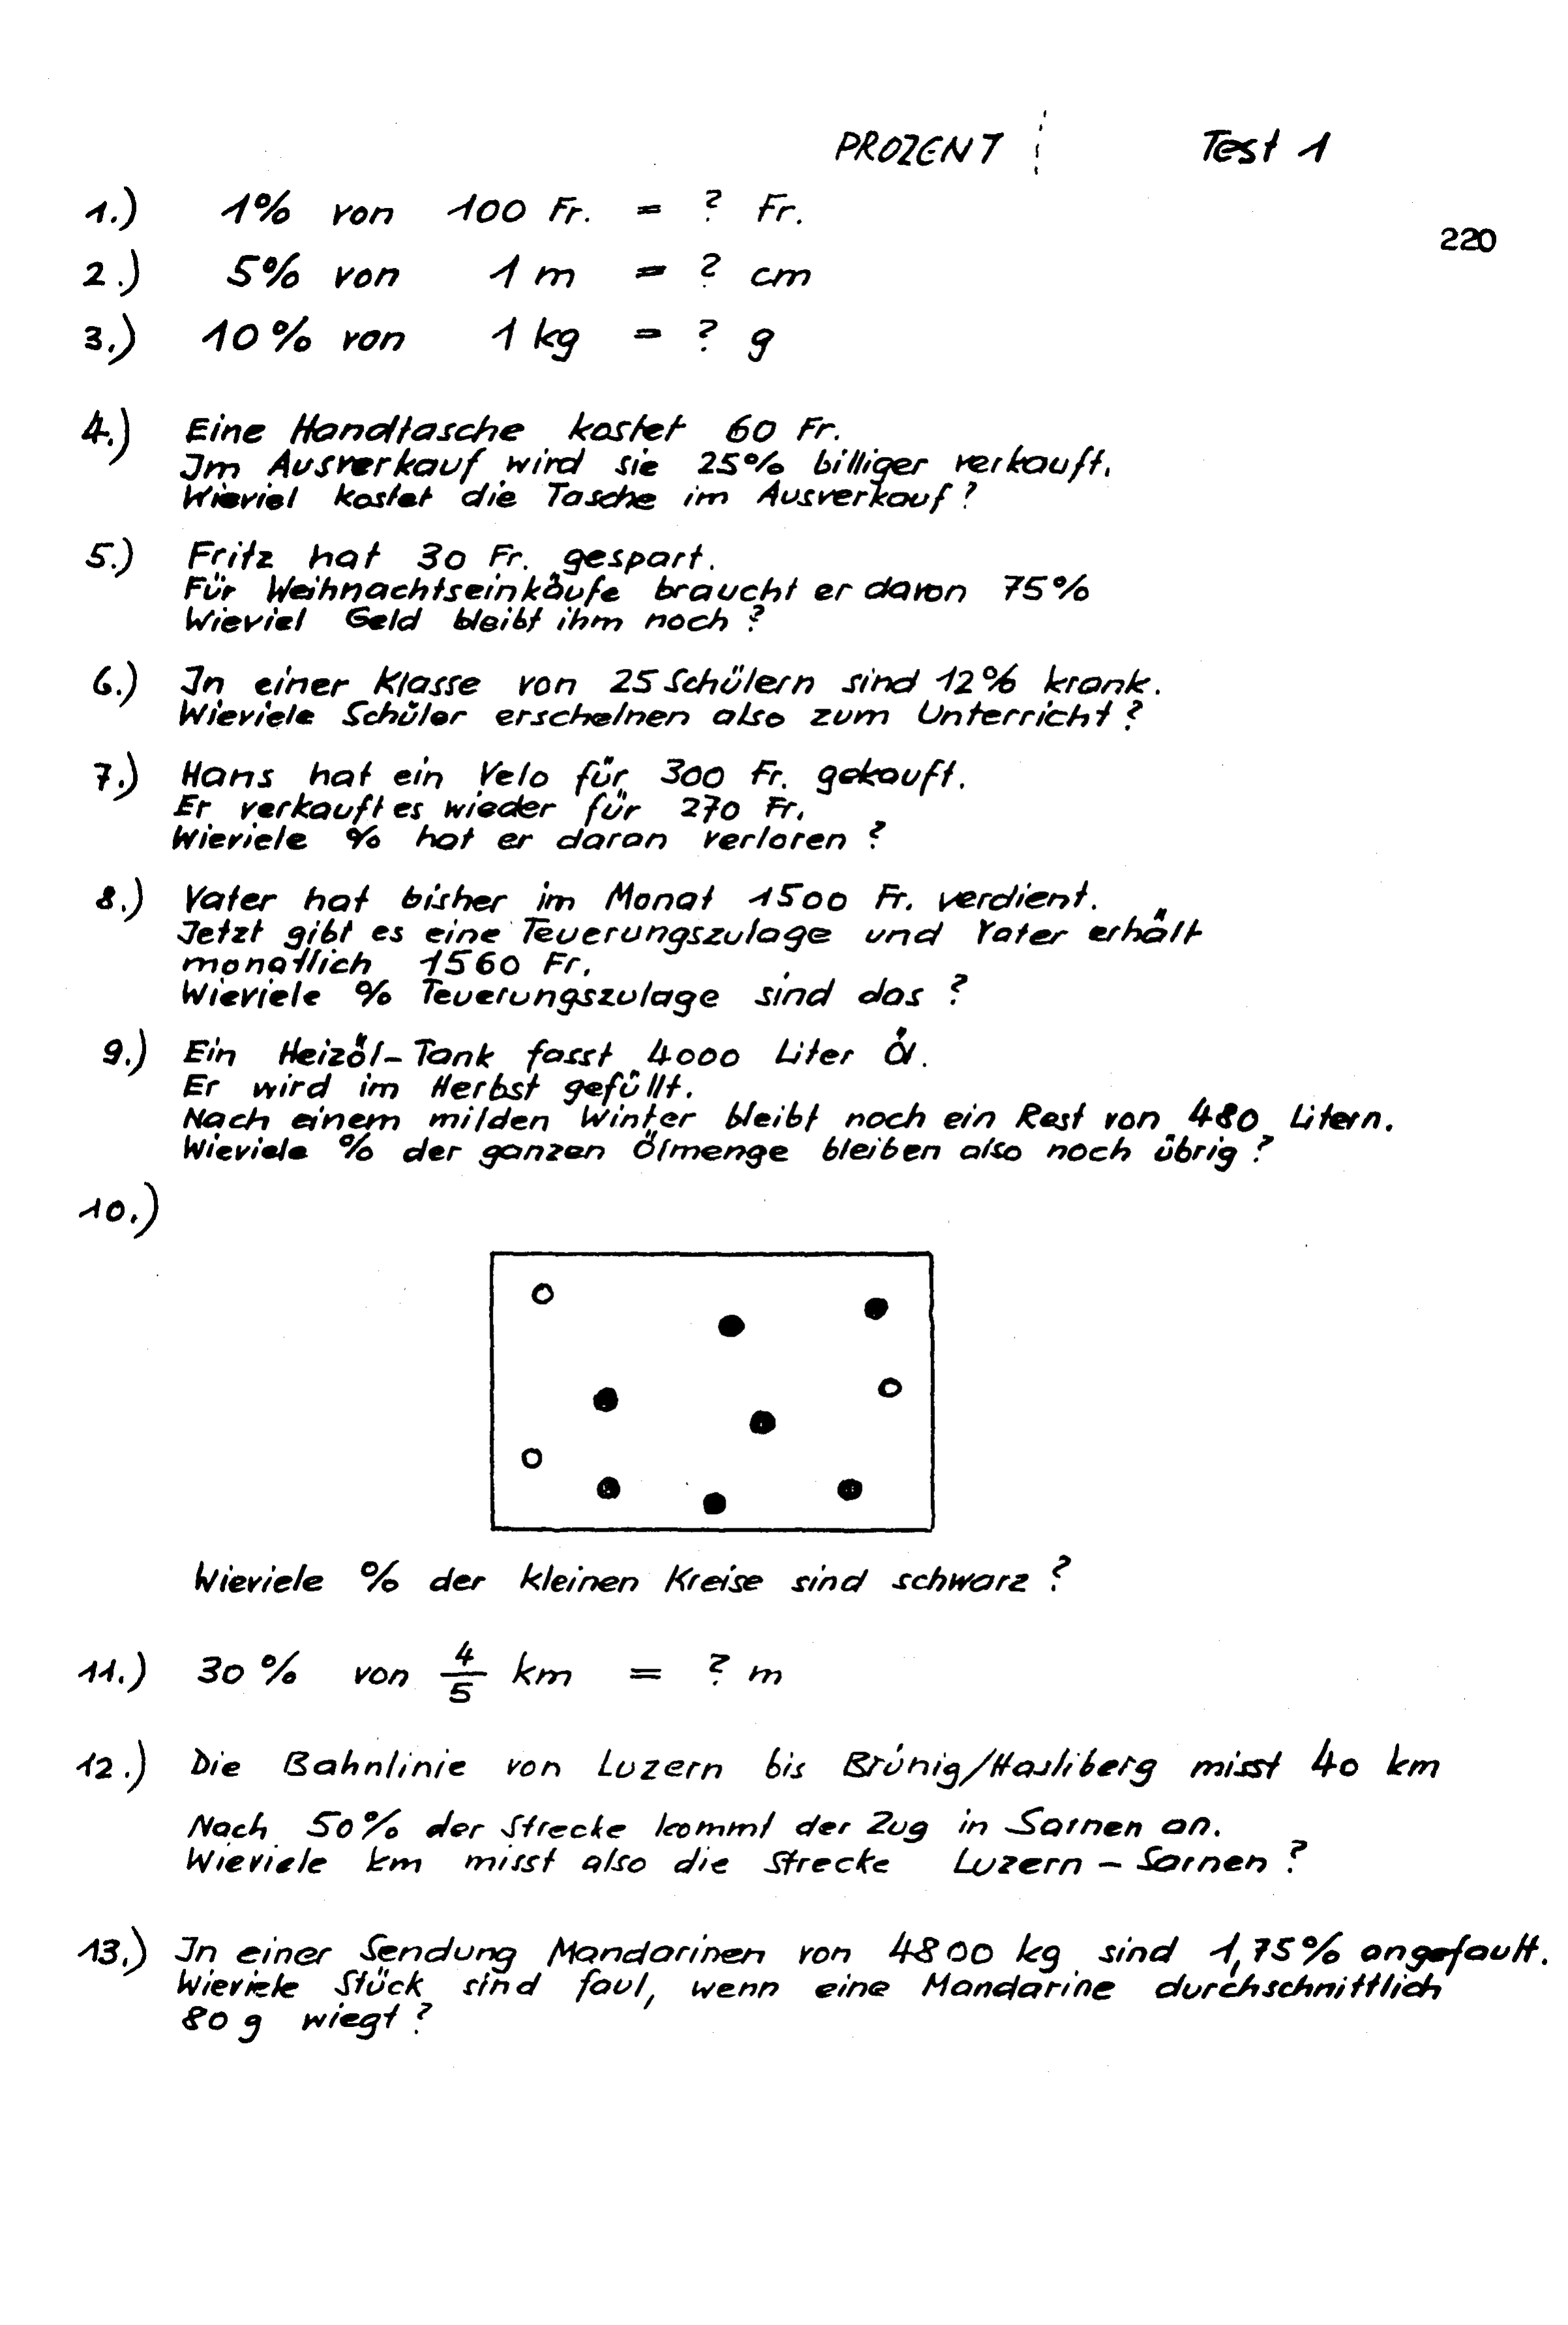 PROZENT Test 1
1.) 1% von 100 Fr. = ? Fr.
220
2.) 5% von 1 m = ? cm
3.) 10% von 1 kg = ? g
4.) Eine Handtasche kostet 60 Fr.
Im Ausverkauf wird sie 25% billiger verkauft.
Wieviel kostet die Tasche im Ausverkauf?
5.) Fritz hat 30 Fr. gespart.
Für Weihnachtseinkäufe braucht er davon 75%
Wieviel Geld bleibt ihm noch?
6.) In einer Klasse von 25 Schülern sind 12% krank.
Wieviele Schüler erscheinen also zum Unterricht?
7.) Hans hat ein Velo für 300 Fr. gekauft.
Er verkauft es wieder für 270 Fr.
Wieviele % hat er daran verloren?
8.) Vater hat bisher im Monat 1500 Fr. verdient.
Jetzt gibt es eine Teuerungszulage und Vater erhält
monatlich 1560 Fr.
Wieviele % Teuerungszulage sind das?
9.) Ein Heizöl-Tank fasst 4000 Liter Öl.
Er wird im Herbst gefüllt.
Nach einem milden Winter bleibt noch ein Rest von 480 Litern.
Wieviele % der ganzen Ölmenge bleiben also noch übrig?
10.)
Wieviele % der kleinen Kreise sind schwarz?
11.) 30% von 4/5 km = ? m
12.) Die Bahnlinie von Luzern bis Brünig/Hasliberg misst 40 km
Nach 50% der Strecke kommt der Zug in Sarnen an.
Wieviele km misst also die Strecke Luzern - Sarnen?
13.) In einer Sendung Mandarinen von 4800 kg sind 1,75% angefault.
Wieviele Stück sind faul, wenn eine Mandarine durchschnittlich
80 g wiegt?